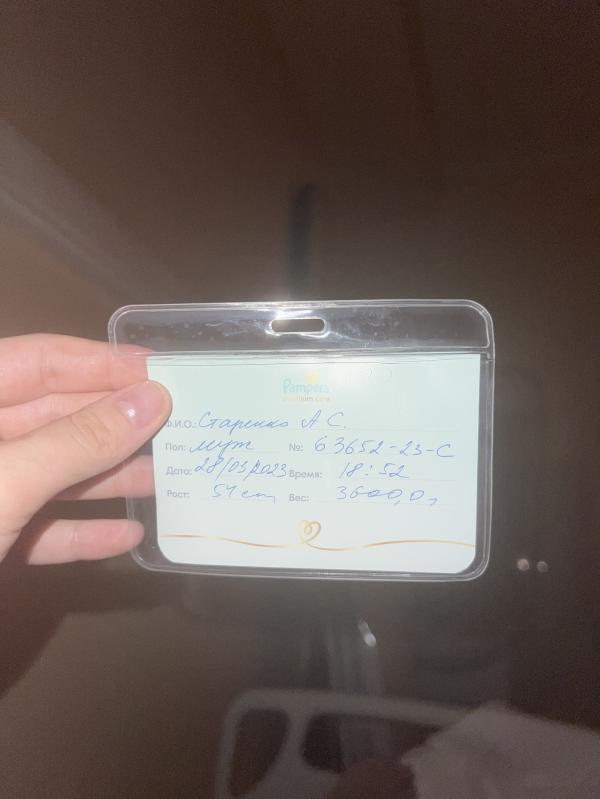 Pampers
premium care
Ф.И.О.: Старенко А С.
Пол: муж №: 63652-23-С
Дата: 28/03/2023 Время: 18:52
Рост: 54 cm Вес: 3600,0г